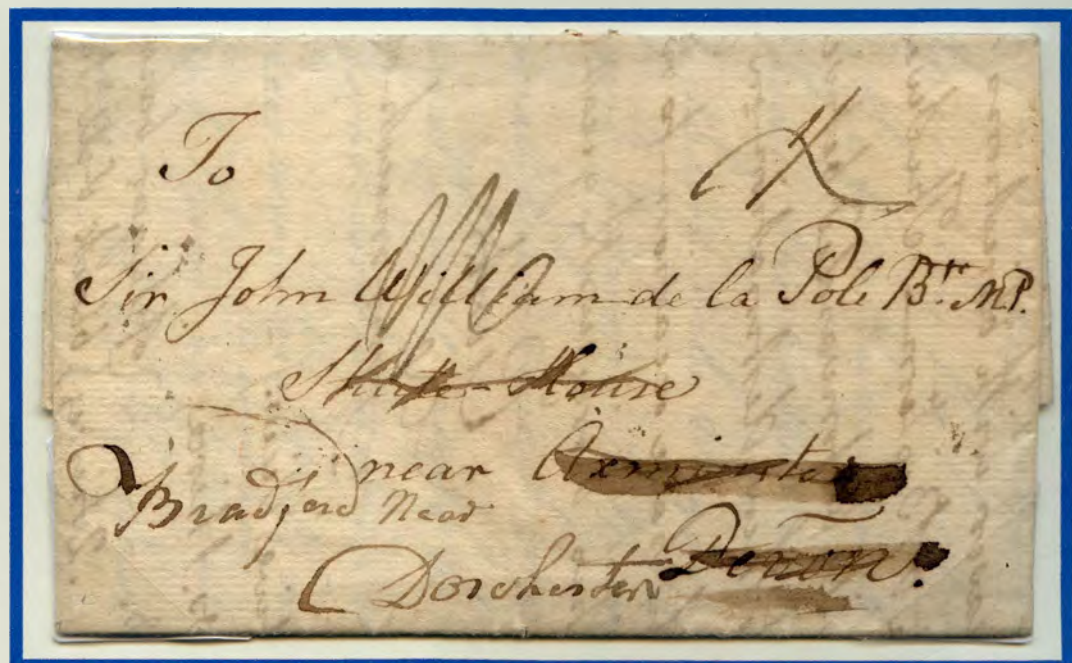 To
Sir John William de la Pole Bt. MP.
Shute House
near Axminster
Bradford Near
Dorchester Devon.